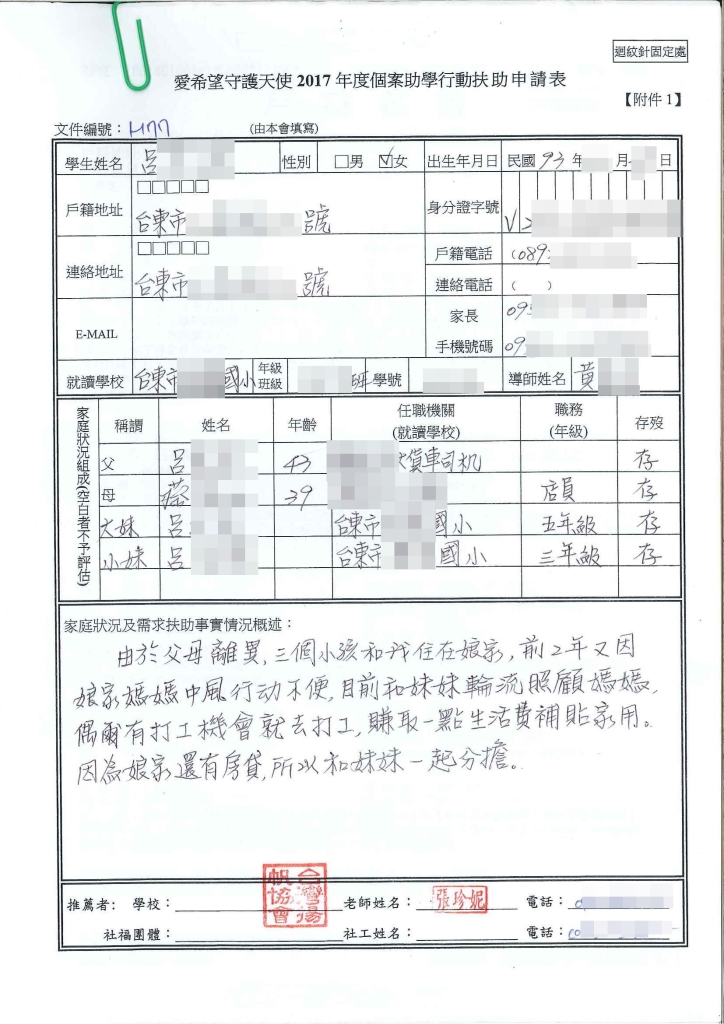 迴紋針固定處
愛希望守護天使2017年度個案助學行動扶助申請表
【附件1】
文件編號：H77 (由本會填寫)
學生姓名 呂 性別 □男 ☑女 出生年月日 民國 93 年 月 日
戶籍地址 □□□□□ 台東市 號 身分證字號 V2
連絡地址 □□□□□ 台東市 號 戶籍電話 (089)
連絡電話 ( )
E-MAIL 家長手機號碼 09 09
就讀學校 台東市 國小 年級班級 班 學號 導師姓名 黃
家庭狀況組成(空白者不予評估)
稱謂 姓名 年齡 任職機關(就讀學校) 職務(年級) 存歿
父 呂 43 貨車司机 存
母 蔡 39 店員 存
大妹 呂 台東市 國小 五年級 存
小妹 呂 台東市 國小 三年級 存
家庭狀況及需求扶助事實情況概述：
由於父母離異,三個小孩和我住在娘家,前2年又因
娘家媽媽中風行动不便,目前和妹妹輪流照顧媽媽,
偶爾有打工機會就去打工,賺取一點生活費補貼家用。
因為娘家還有房貸,所以和妹妹一起分擔。
推薦者: 學校： 老師姓名： 張珍妮 電話：
社福團體： 社工姓名： 電話：
台灣揚帆協會